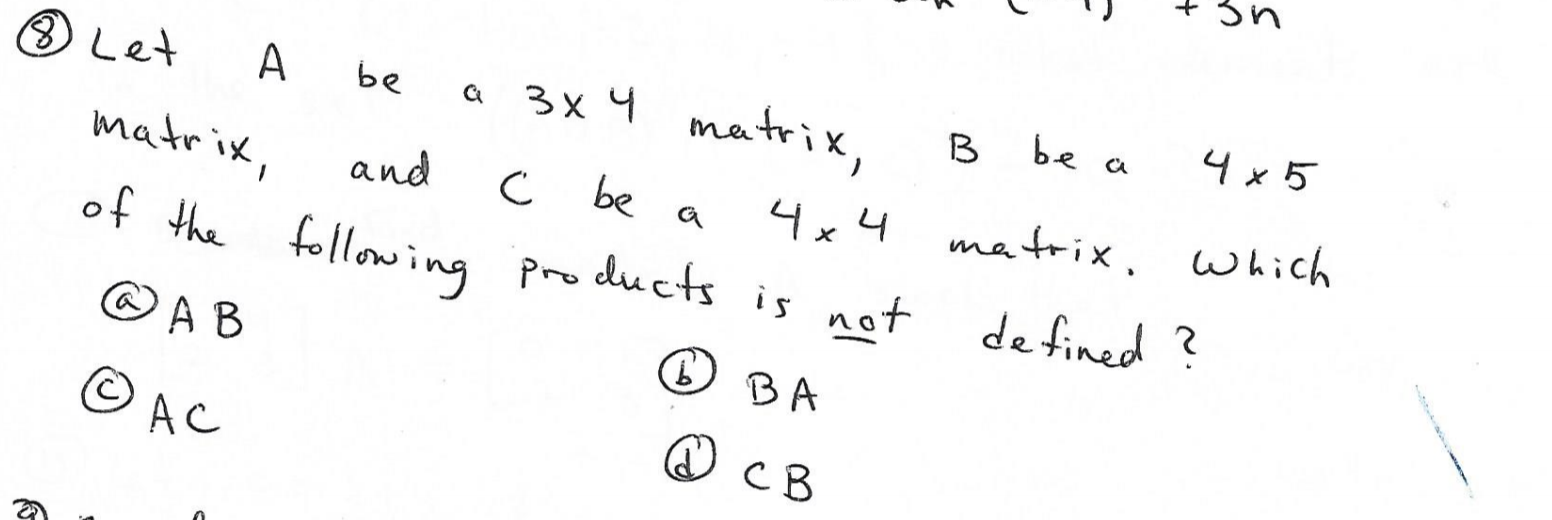 + 3n
⑧ Let A be a 3 x 4 matrix, B be a 4 x 5
matrix, and C be a 4 x 4 matrix. Which
of the following products is not defined?
ⓐ AB ⓑ BA
ⓒ AC ⓓ CB